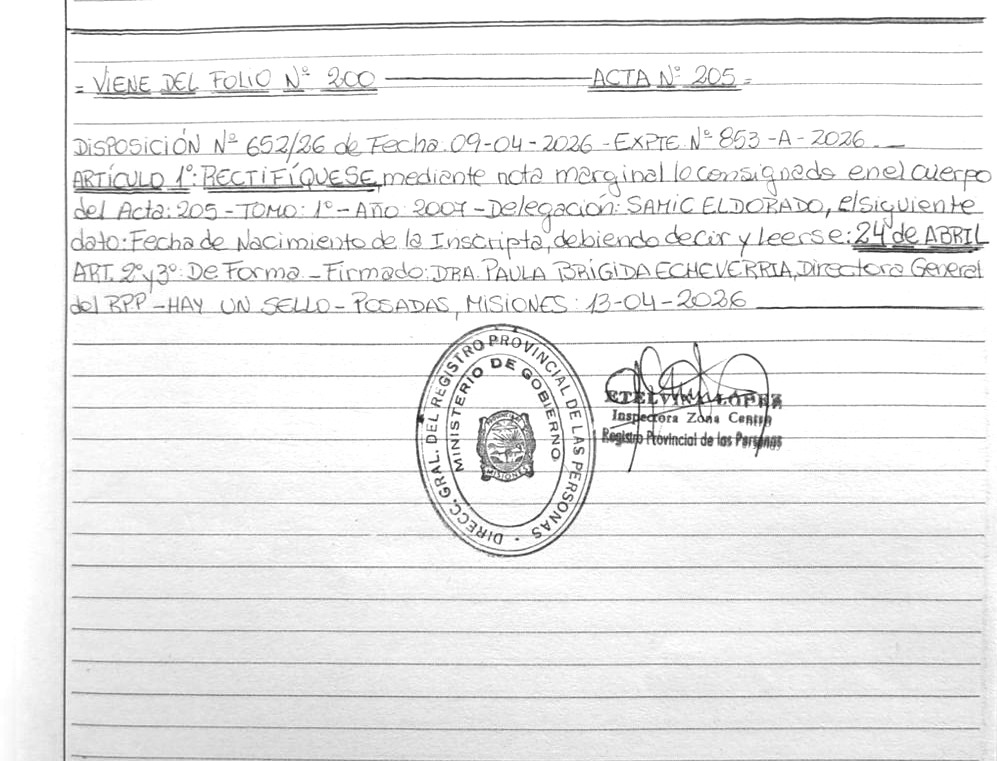 = VIENE DEL FOLIO Nº 200 ——— ACTA Nº 205 =
DISPOSICIÓN Nº 652/26 de Fecha: 09-04-2026 - EXPTE. Nº 853-A-2026.
ARTÍCULO 1º: RECTIFÍQUESE, mediante nota marginal lo consignado en el cuerpo
del Acta: 205 - TOMO: 1º - AÑO: 2007 - Delegación: SAMIC ELDORADO, el siguiente
dato: Fecha de Nacimiento de la Inscripta, debiendo decir y leerse: 24 de ABRIL
ART. 2º y 3º: De Forma - Firmado: DRA. PAULA BRÍGIDA ECHEVERRIA, Directora General
del RPP - HAY UN SELLO - POSADAS, MISIONES: 13-04-2026
DIRECC. GRAL. DEL REGISTRO PROVINCIAL DE LAS PERSONAS
MINISTERIO DE GOBIERNO
MISIONES
ETELVINA LOPEZ
Inspectora Zona Centro
Registro Provincial de las Personas